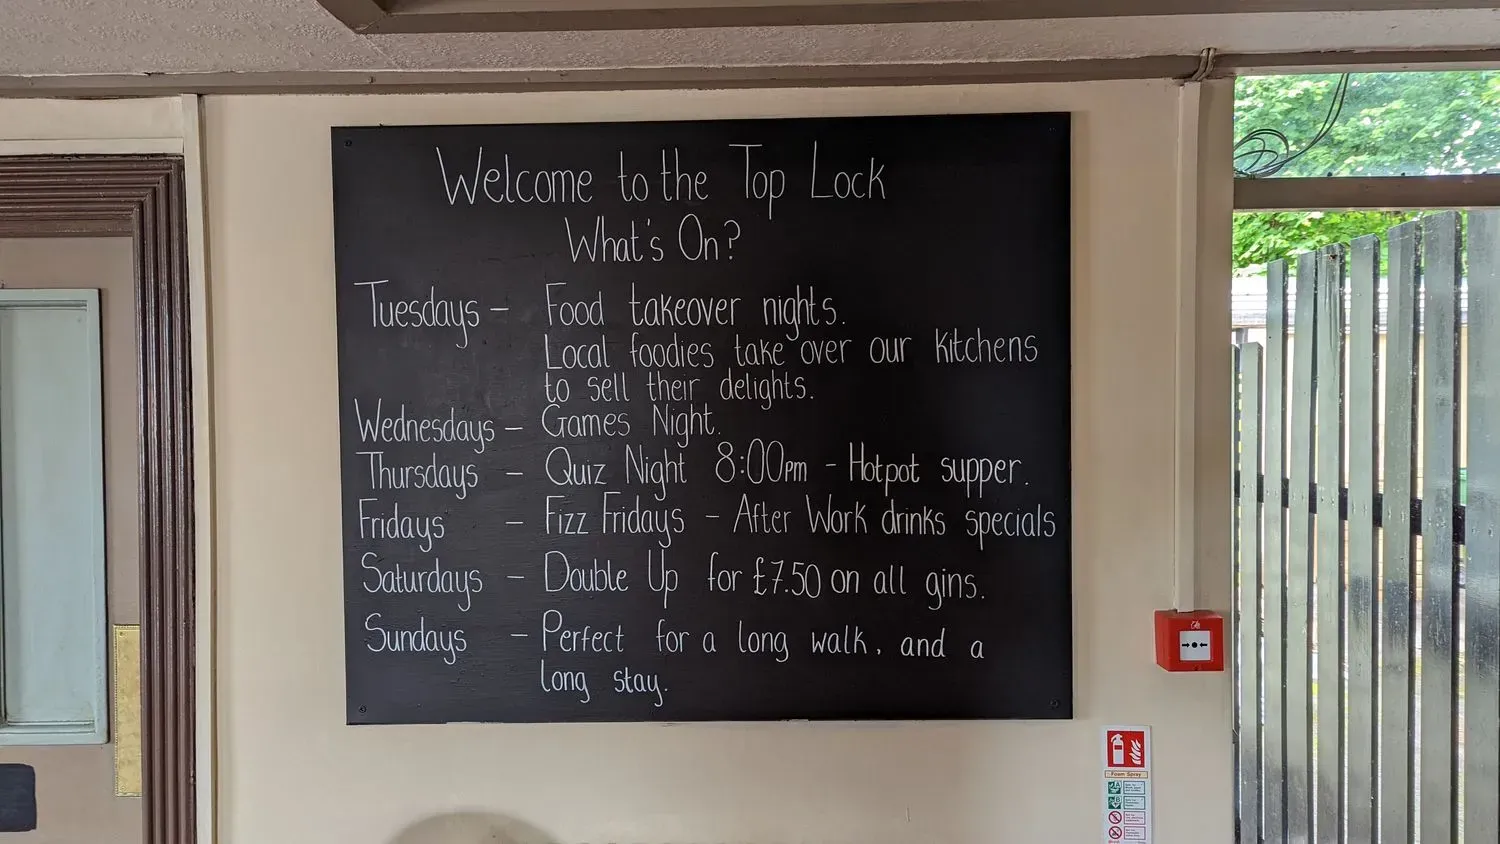 Welcome to the Top Lock
What's On?
Tuesdays - Food takeover nights.
Local foodies take over our kitchens
to sell their delights.
Wednesdays - Games Night.
Thursdays - Quiz Night 8:00pm - Hotpot supper.
Fridays - Fizz Fridays - After Work drinks specials
Saturdays - Double Up for £7.50 on all gins.
Sundays - Perfect for a long walk, and a
long stay.
Foam Spray